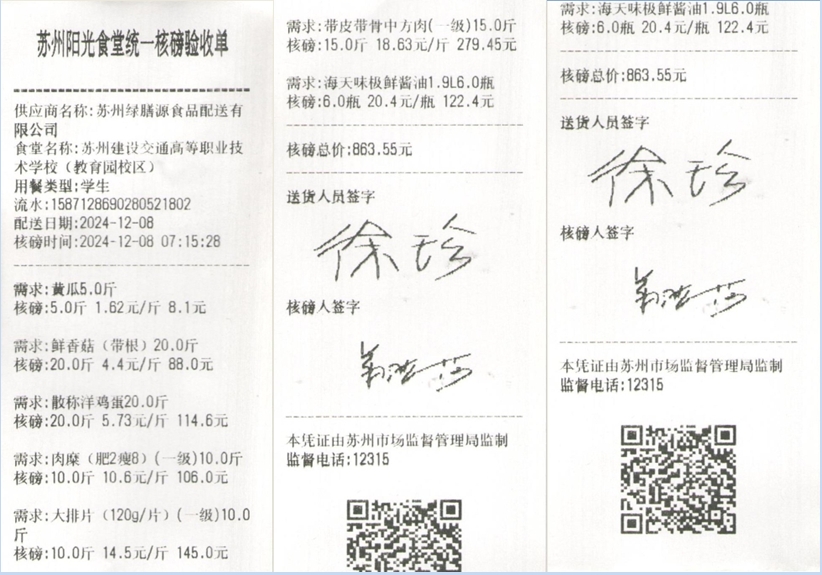 苏州阳光食堂统一核磅验收单
供应商名称:苏州绿膳源食品配送有
限公司
食堂名称:苏州建设交通高等职业技
术学校（教育园校区）
用餐类型:学生
流水:1587128690280521802
配送日期:2024-12-08
核磅时间:2024-12-08 07:15:28
需求:黄瓜5.0斤
核磅:5.0斤 1.62元/斤 8.1元
需求:鲜香菇（带根）20.0斤
核磅:20.0斤 4.4元/斤 88.0元
需求:散称洋鸡蛋20.0斤
核磅:20.0斤 5.73元/斤 114.6元
需求:肉糜（肥2瘦8）(一级)10.0斤
核磅:10.0斤 10.6元/斤 106.0元
需求:大排片（120g/片）(一级)10.0
斤
核磅:10.0斤 14.5元/斤 145.0元
需求:带皮带骨中方肉(一级)15.0斤
核磅:15.0斤 18.63元/斤 279.45元
需求:海天味极鲜酱油1.9L6.0瓶
核磅:6.0瓶 20.4元/瓶 122.4元
核磅总价:863.55元
送货人员签字
徐珍
核磅人签字
本凭证由苏州市场监督管理局监制
监督电话:12315
需求:海天味极鲜酱油1.9L6.0瓶
核磅:6.0瓶 20.4元/瓶 122.4元
核磅总价:863.55元
送货人员签字
徐珍
核磅人签字
本凭证由苏州市场监督管理局监制
监督电话:12315